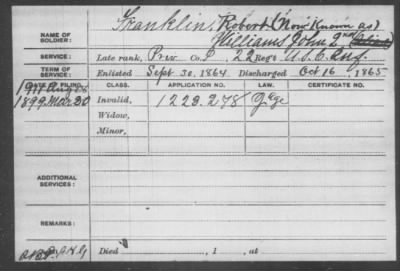 NAME OF SOLDIER:
Franklin, Robert (Now Known as)
Williams John 2nd (Alias)
SERVICE:
Late rank, Priv Co. , 22 Regt U.S.C. Inf.
TERM OF SERVICE:
Enlisted Sept 30, 1864 Discharged Oct 16, 1865
DATE OF FILING. CLASS. APPLICATION NO. LAW. CERTIFICATE NO.
1899 Mar 20 Invalid, 1223.278
Widow,
Minor,
ADDITIONAL SERVICES:
REMARKS:
Died , 1 , at